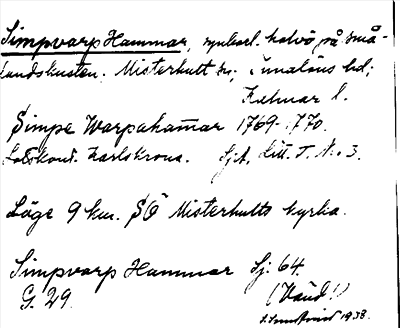 Simpvarp Hammar, symbol. halvö på små-
landskusten. Misterhult sn; Tunaläns hd;
Kalmar l.
Simpe Warpahamar 1769-1770.
Lotskont. Karlskrona. Sjk, Litt. T. N:o 3.
Läge 9 km. SÖ Misterhults kyrka.
Simpvarp Hammar Sj. 64.
G. 29. (Vänd!)
1938.